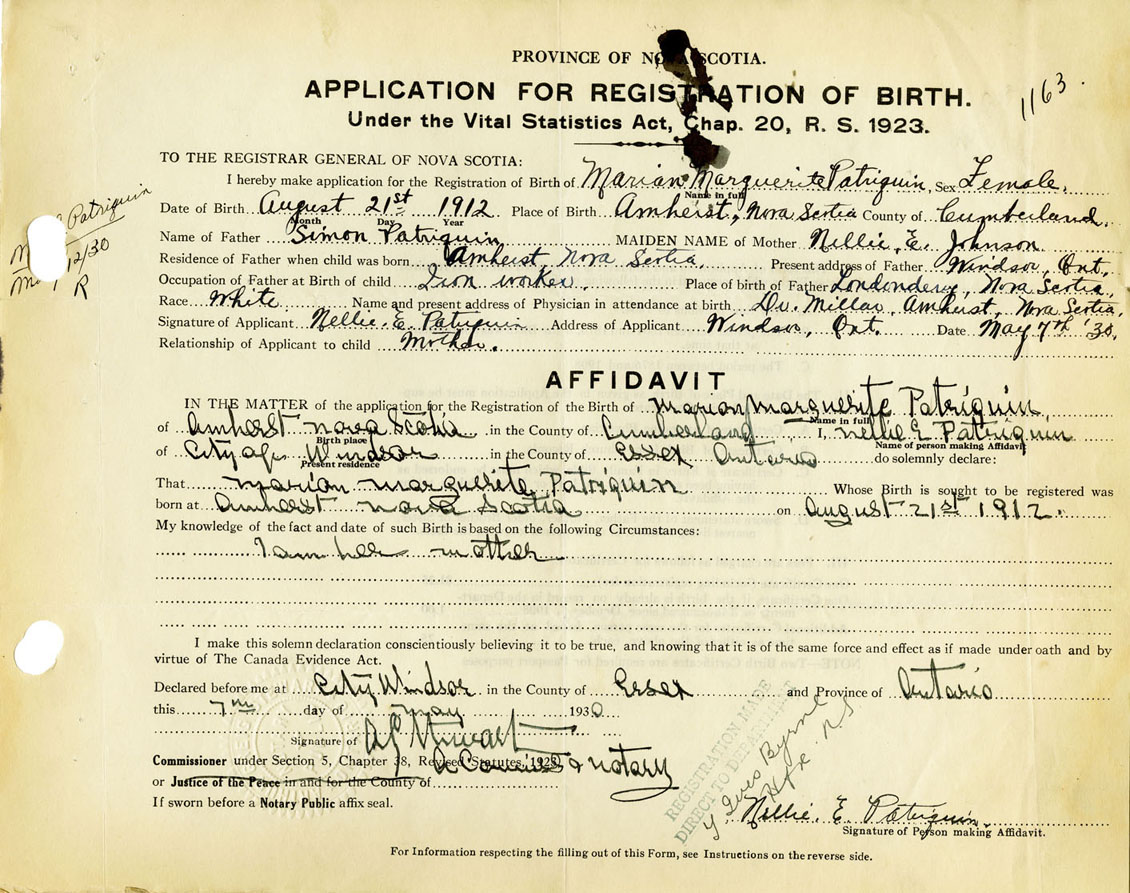 PROVINCE OF NOVA SCOTIA.
1163.
APPLICATION FOR REGISTRATION OF BIRTH.
Under the Vital Statistics Act, Chap. 20, R. S. 1923.
TO THE REGISTRAR GENERAL OF NOVA SCOTIA:
I hereby make application for the Registration of Birth of Marian Marguerite Patriquin, Sex Female.
Name in full
Patriquin
12/30
R
Date of Birth August 21st 1912 Place of Birth Amherst, Nova Scotia County of Cumberland.
Month Day Year
Name of Father Simon Patriquin MAIDEN NAME of Mother Nellie E. Johnson
Residence of Father when child was born Amherst, Nova Scotia, Present address of Father Windsor, Ont.
Occupation of Father at Birth of child Iron worker Place of birth of Father Londonderry, Nova Scotia.
Race White Name and present address of Physician in attendance at birth Dr. Millar, Amherst, Nova Scotia,
Signature of Applicant Nellie. E. Patriquin Address of Applicant Windsor, Ont. Date May 7th '30.
Relationship of Applicant to child Mother.
AFFIDAVIT
IN THE MATTER of the application for the Registration of the Birth of Marion Marguerite Patriquin
Name in full
of Amherst Nova Scotia in the County of Cumberland I, Nellie E Patriquin
Birth place Name of person making Affidavit
of City of Windsor in the County of Essex Ontario do solemnly declare:
Present residence
That Marion Marguerite Patriquin Whose Birth is sought to be registered was
born at Amherst Nova Scotia on August 21st 1912.
My knowledge of the fact and date of such Birth is based on the following Circumstances:
I am her mother
I make this solemn declaration conscientiously believing it to be true, and knowing that it is of the same force and effect as if made under oath and by
virtue of The Canada Evidence Act.
Declared before me at City Windsor in the County of Essex and Province of Ontario
this 7th day of May 1930
Signature of
Commissioner under Section 5, Chapter 38, Revised Statutes, 1923
A & Notary
or Justice of the Peace in and for the County of
If sworn before a Notary Public affix seal.
REGISTRATION MADE
DIRECT TO DEPARTMENT
Byrne
Hfx. N S
Nellie. E. Patriquin.
Signature of Person making Affidavit.
For Information respecting the filling out of this Form, see Instructions on the reverse side.